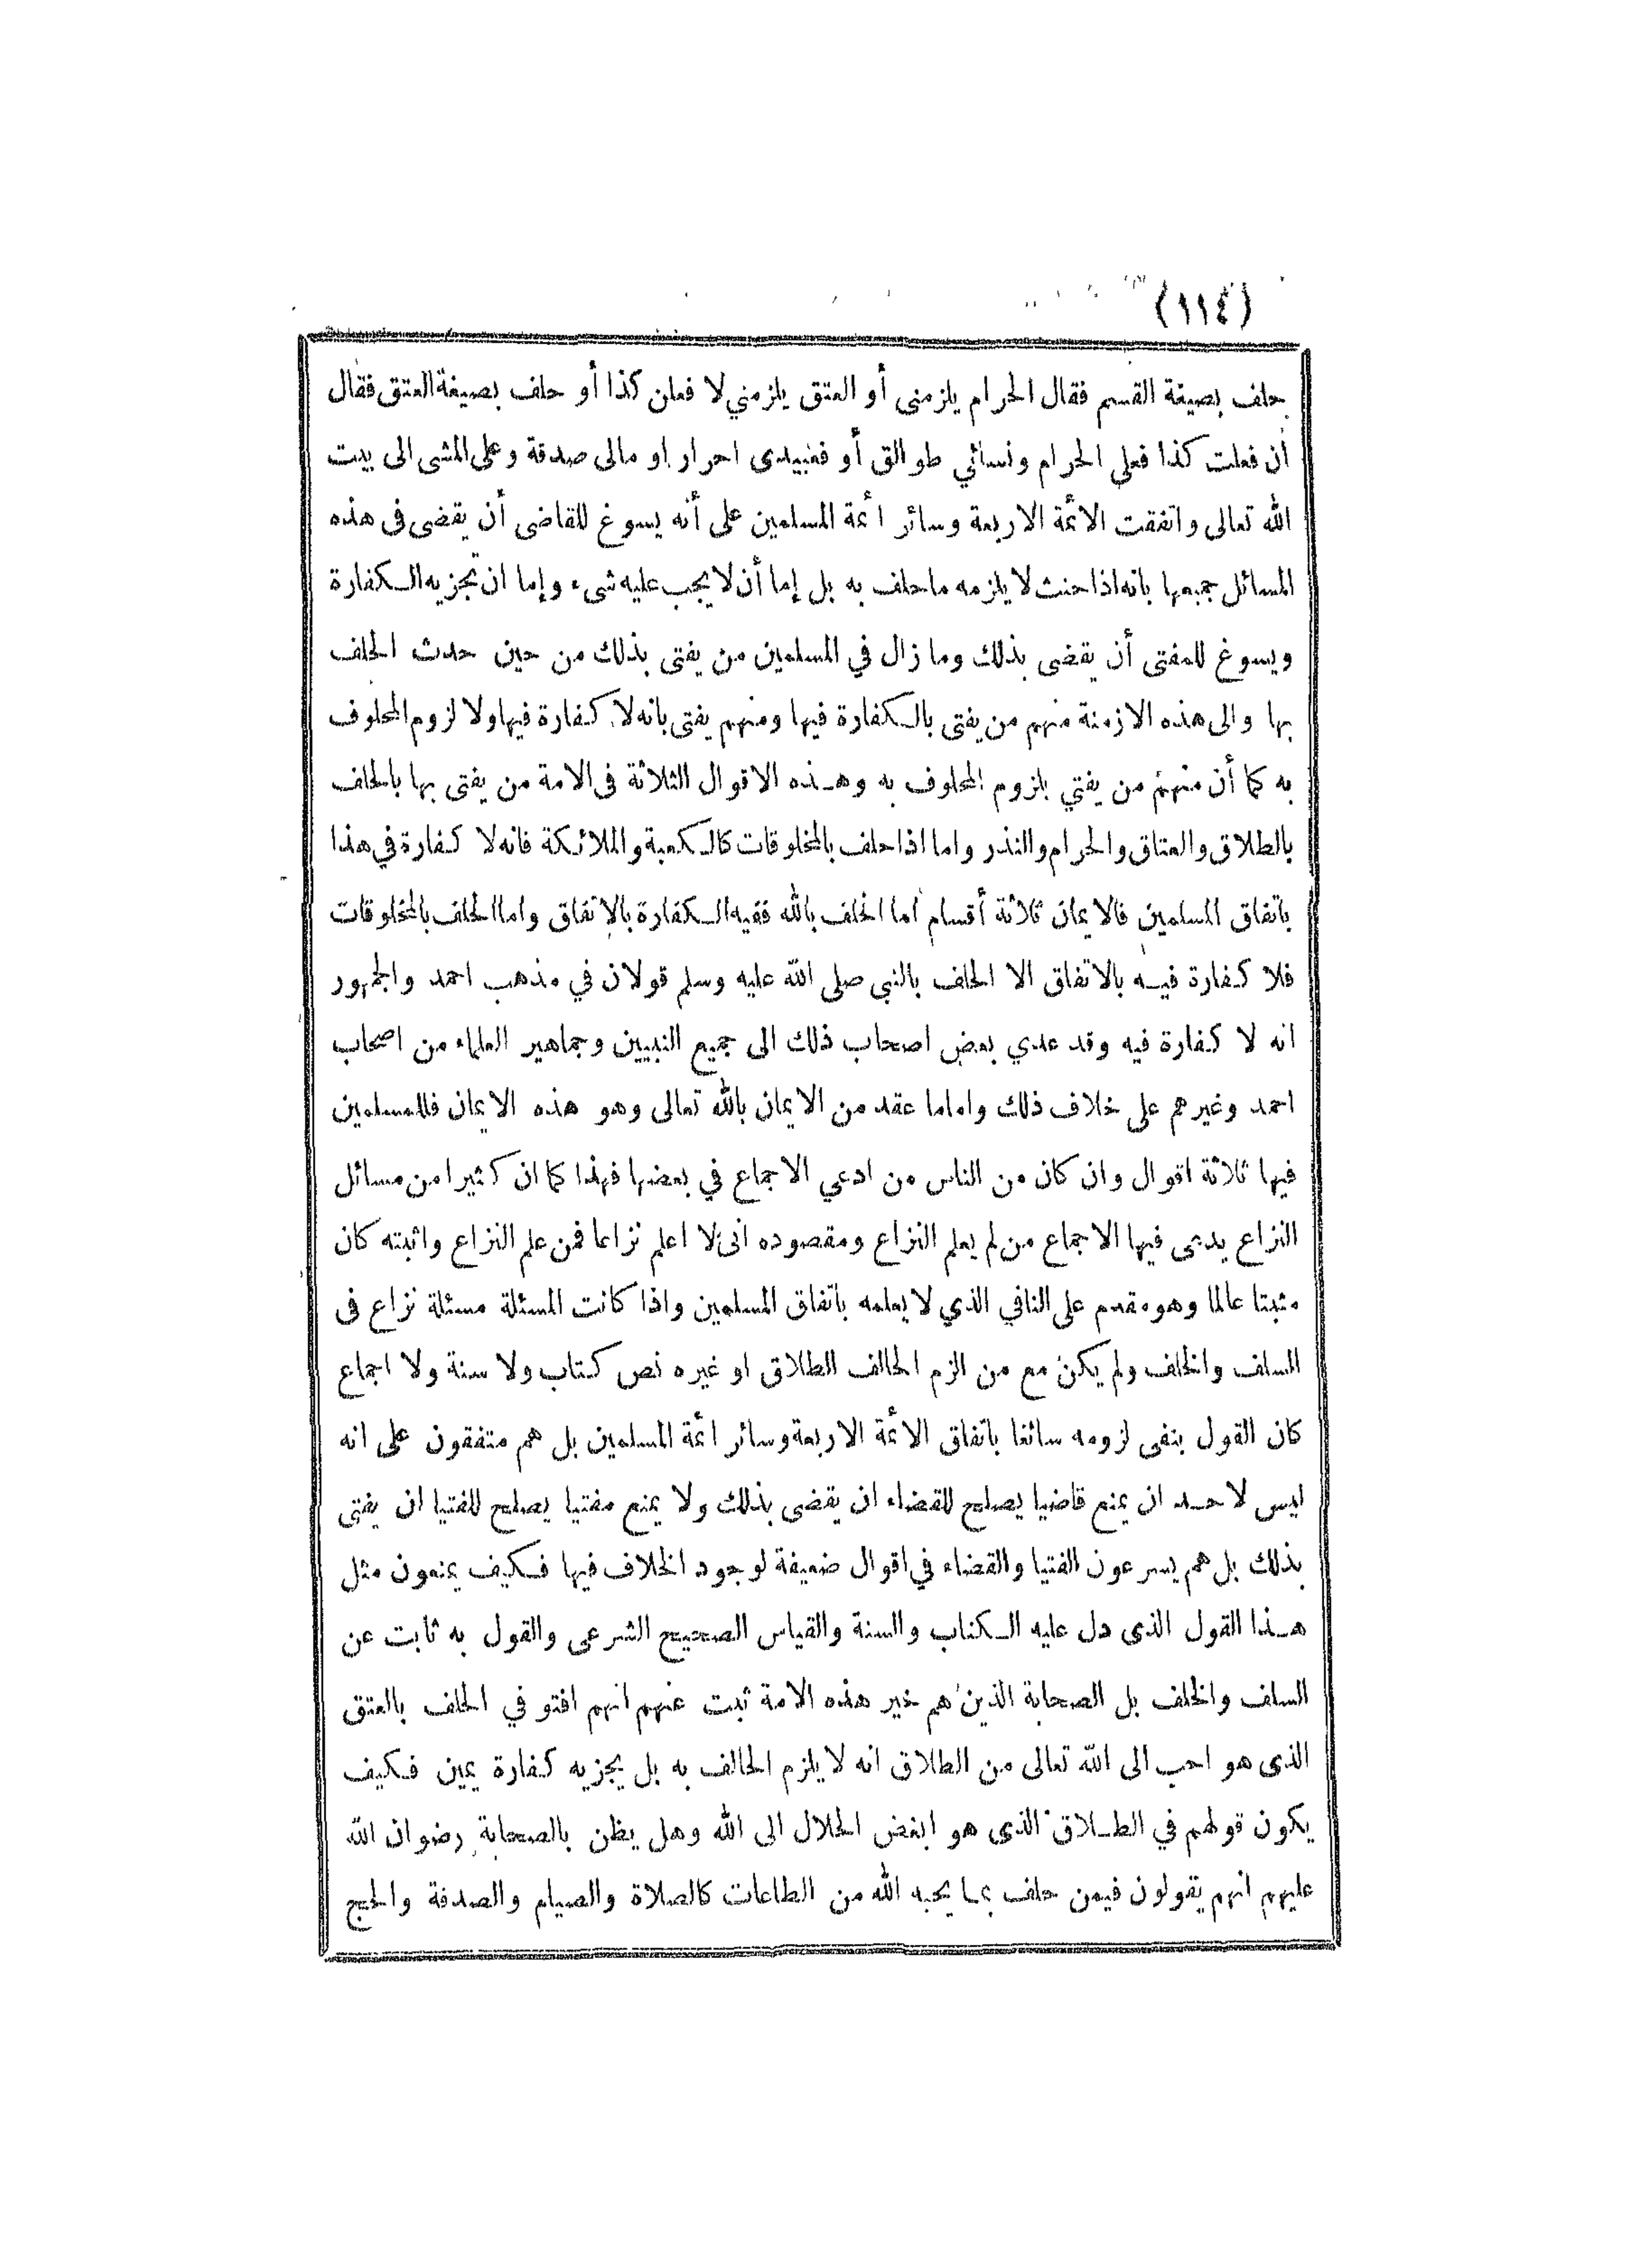 (١١٤)
حلف بصيغة القسم فقال الحرام يلزمنى أو العتق يلزمني لا فعلن كذا أو حلف بصيغة العتق فقال
أن فعلت كذا فعلي الحرام ونسائي طوالق أو فعبيدى احرار او مالى صدقة وعلى المشى الى بيت
الله تعالى واتفقت الأئمة الاربعة وسائر أئمة المسلمين على أنه يسوغ للقاضى أن يقضى فى هذه
المسائل جميعها بانه اذا حنث لا يلزمه ما حلف به بل إما أن لا يجب عليه شىء وإما ان تجزيه الكفارة
ويسوغ للمفتى أن يقضى بذلك وما زال في المسلمين من يفتى بذلك من حين حدث الحلف
بها والى هذه الازمنة منهم من يفتى بالكفارة فيها ومنهم يفتى بانه لا كفارة فيها ولا لزوم المحلوف
به كما أن منهم من يفتي بلزوم المحلوف به وهذه الاقوال الثلاثة فى الامة من يفتى بها بالحلف
بالطلاق والعتاق والحرام والنذر واما اذا حلف بالمخلوقات كالكعبة والملائكة فانه لا كفارة في هذا
باتفاق المسلمين فالايمان ثلاثة أقسام أما الحلف بالله ففيه الكفارة بالاتفاق واما الحلف بالمخلوقات
فلا كفارة فيه بالاتفاق الا الحلف بالنبى صلى الله عليه وسلم قولان في مذهب احمد والجمهور
انه لا كفارة فيه وقد عدي بعض اصحاب ذلك الى جميع النبيين وجماهير العلماء من اصحاب
احمد وغيرهم على خلاف ذلك واماما عقد من الايمان بالله تعالى وهو هذه الايمان فللمسلمين
فيها ثلاثة اقوال وان كان من الناس من ادعي الاجماع في بعضها فهذا كما ان كثيرا من مسائل
النزاع يدعى فيها الاجماع من لم يعلم النزاع ومقصوده انى لا اعلم نزاعا فمن علم النزاع واثبته كان
مثبتا عالما وهو مقدم على النافي الذي لا يعلمه باتفاق المسلمين واذا كانت المسئلة مسئلة نزاع فى
السلف والخلف ولم يكن مع من الزم الحالف الطلاق او غيره نص كتاب ولا سنة ولا اجماع
كان القول بنفى لزومه سائغا باتفاق الأئمة الاربعة وسائر أئمة المسلمين بل هم متفقون على انه
ليس لاحد ان يمنع قاضيا يصلح للقضاء ان يقضى بذلك ولا يمنع مفتيا يصلح للفتيا ان يفتى
بذلك بل هم يسرعون الفتيا والقضاء في اقوال ضعيفة لوجود الخلاف فيها فكيف يمنعون مثل
هذا القول الذى دل عليه الكتاب والسنة والقياس الصحيح الشرعى والقول به ثابت عن
السلف والخلف بل الصحابة الذين هم خير هذه الامة ثبت عنهم انهم افتو في الحلف بالعتق
الذى هو احب الى الله تعالى من الطلاق انه لا يلزم الحالف به بل يجزيه كفارة يمين فكيف
يكون قولهم في الطلاق الذى هو ابغض الحلال الى الله وهل يظن بالصحابة رضوان الله
عليهم انهم يقولون فيمن حلف بما يحبه الله من الطاعات كالصلاة والصيام والصدقة والحج